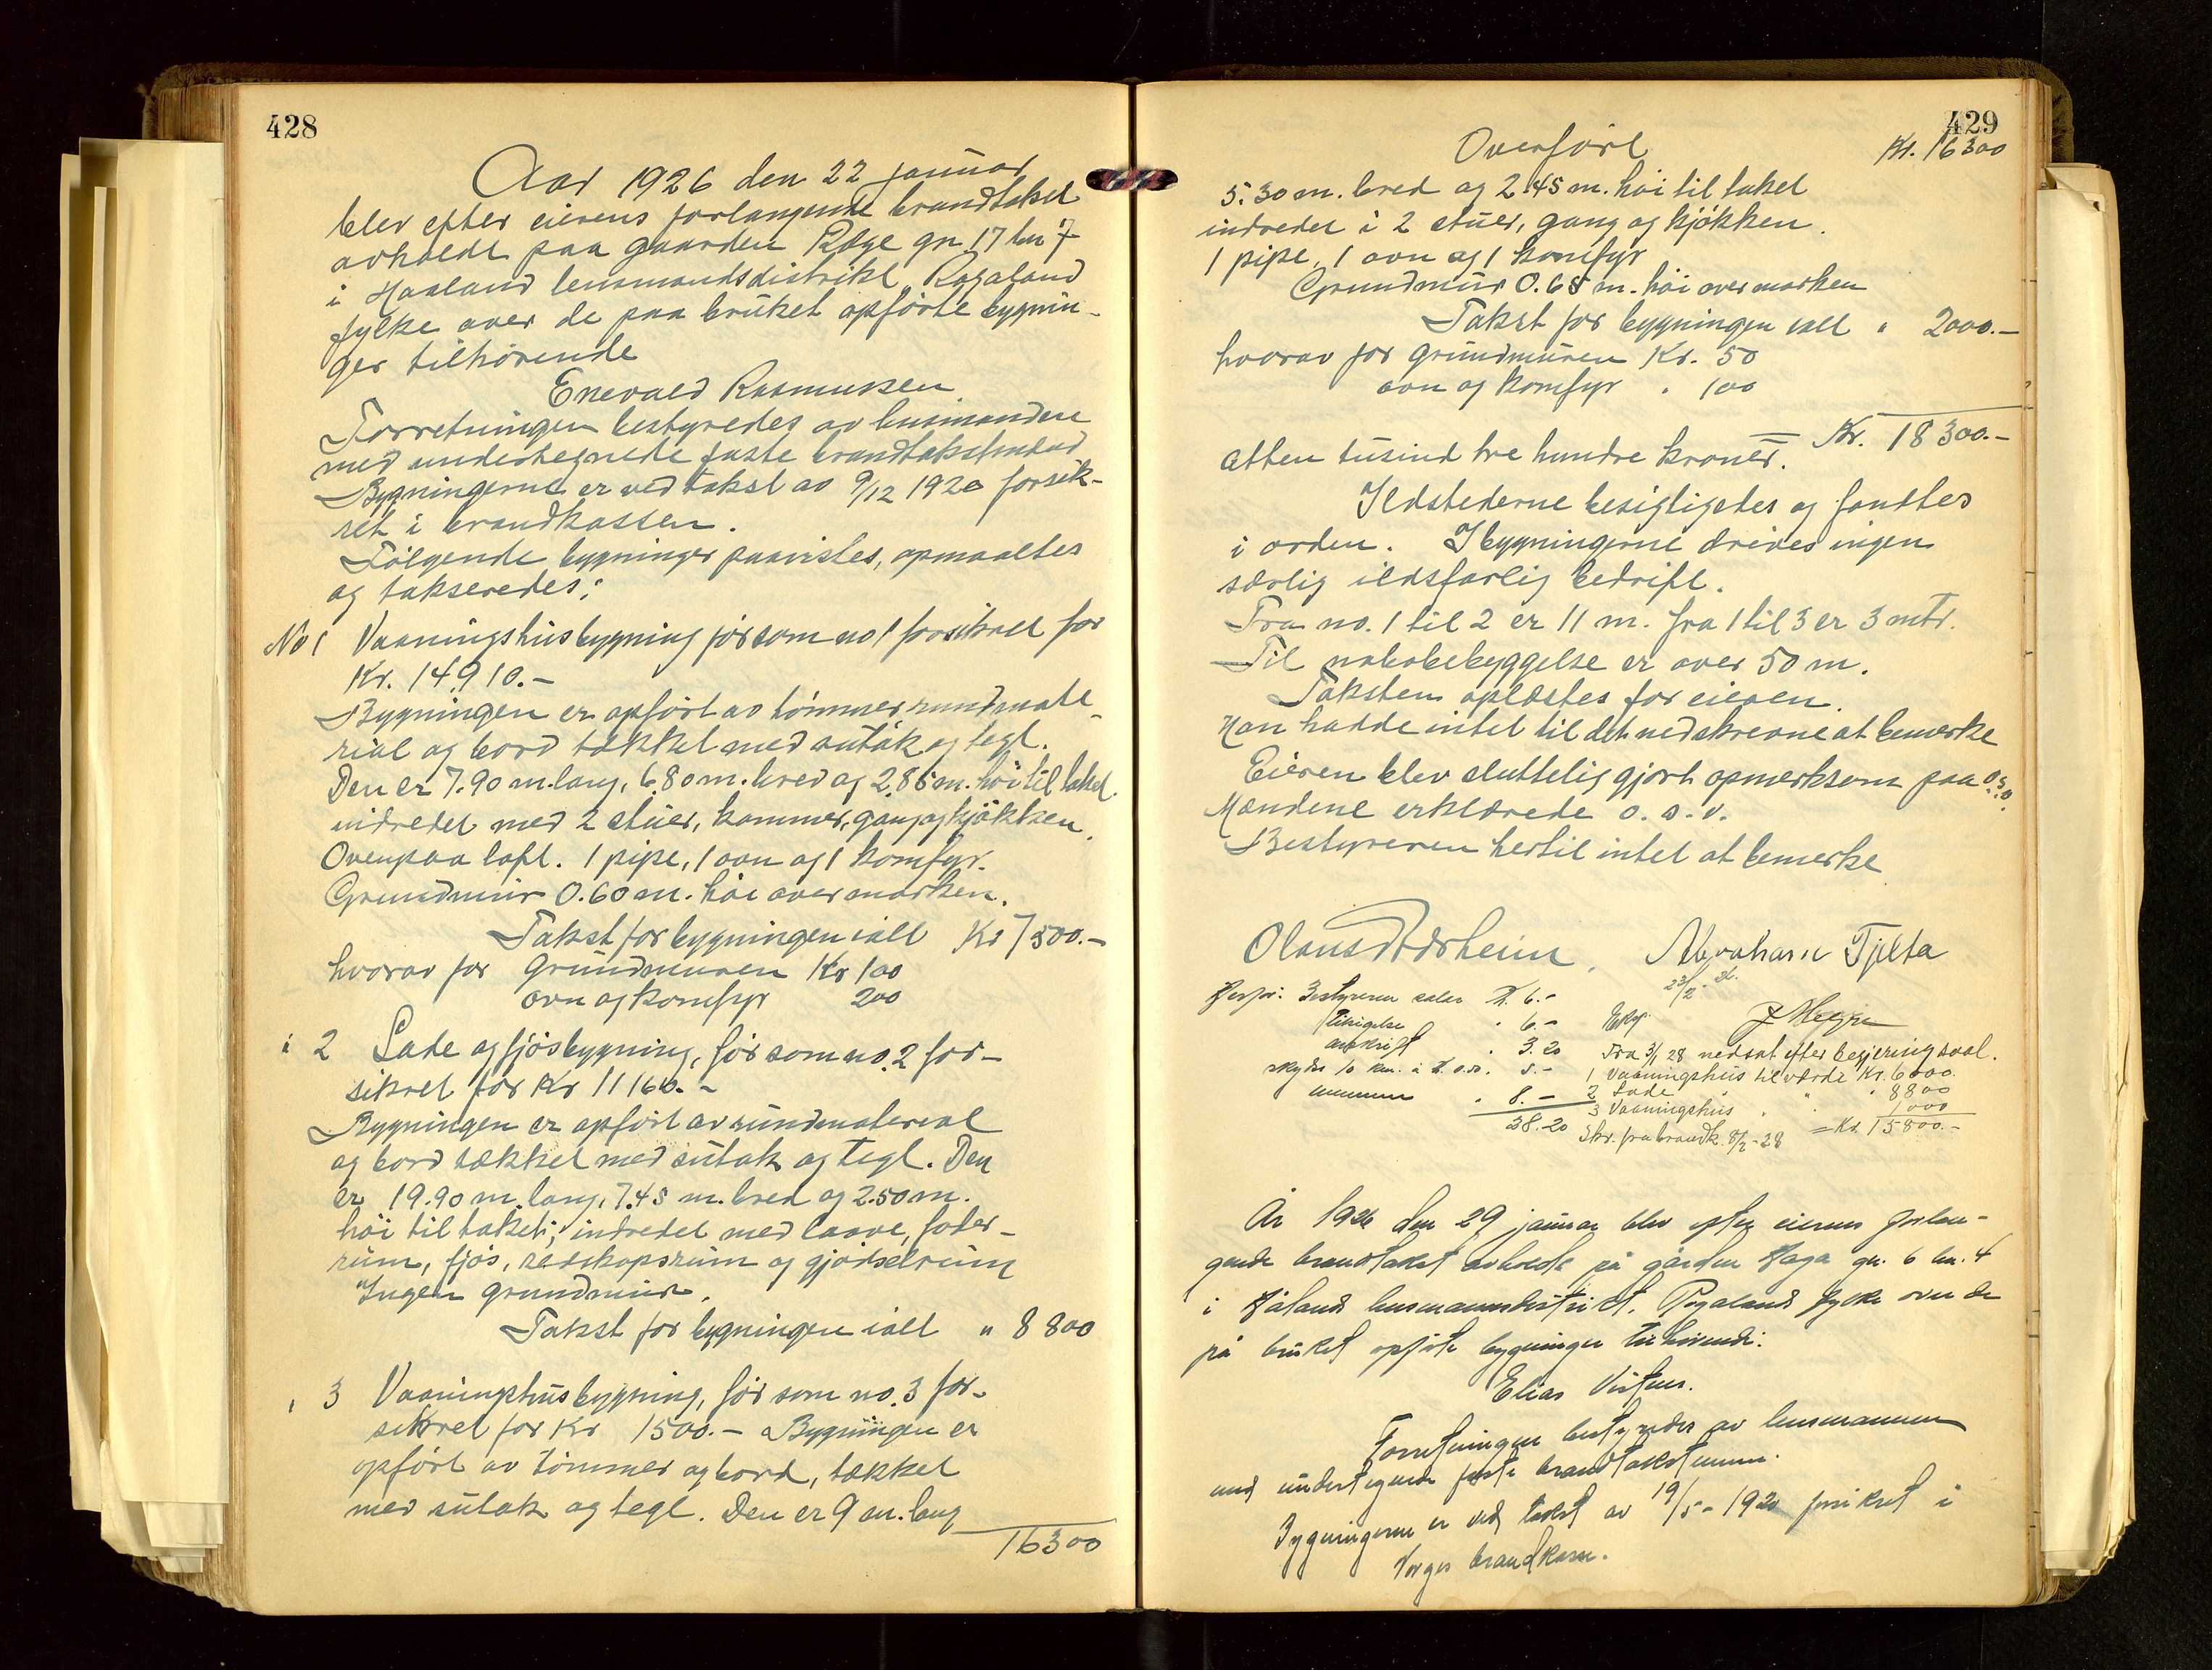 428
Aar 1926 den 22 januar
blev efter eierens forlangende brandtakst
avholdt paa gaarden Ræge gn 17 bn 7
i Haaland lensmandsdistrikt Rogaland
fylke over de paa bruket opførte bygnin-
ger tilhørende
Enevald Rasmussen
Forretningen bestyredes av lensmanden
med undertegnede faste brandtakstmænd
Bygningerne er ved takst av 9/12 1920 forsik-
ret i brandkassen.
Følgende bygninger paavistes, opmaaltes
og takseredes:
No 1 Vaaningshusbygning før som no 1 forsikret for
Kr. 14910.-
Bygningen er opført av tømmer rundmate-
rial og bord tækket med sutak og tegl.
Den er 7.90 m. lang, 6.80 m. bred og 2.85 m. høi til taket.
indredet med 2 stuer, kammer, gang og kjøkken.
Ovenpaa loft. 1 pipe, 1 ovn og 1 komfyr.
Grundmur 0.60 m. høi over marken.
Takst for bygningen ialt Kr 7500.-
hvorav for Grundmuren Kr 100
ovn og komfyr 200
" 2 Lade og fjøsbygning, før som no. 2 for-
sikret for Kr 11160.-
Bygningen er opført av rundmaterial
og bord tækket med sutak og tegl. Den
er 19.90 m. lang, 7.45 m. bred og 2.50 m.
høi til taket; indredet med laave, foder-
rum, fjøs, redskapsrum og gjødselrum
Ingen grundmur.
Takst for bygningen ialt " 8800
" 3 Vaaningshusbygning, før som no. 3 for-
sikret for Kr 1500.- Bygningen er
opført av tømmer og bord, tækket
med sutak og tegl. Den er 9 m. lang
16300
429
Overført Kr. 16300
5.30 m. bred og 2.45 m. høi til taket
indredet i 2 stuer, gang og kjøkken.
1 pipe, 1 ovn og 1 komfyr
Grundmur 0.65 m. høi over marken
Takst for bygningen ialt " 2000.-
hvorav for grundmuren Kr. 50
ovn og komfyr " 100
Kr. 18300.-
atten tusind tre hundre kroner.
Ildstederne besigtigedes og fandtes
i orden. I bygningerne drives ingen
særlig ildsfarlig bedrift.
Fra no. 1 til 2 er 11 m. fra 1 til 3 er 3 mtr.
Til nabobebyggelse er over 50 m.
Taksten oplæstes for eieren.
Han hadde intet til det nedskrevne at bemerke
Eieren blev sluttelig gjort opmerksom paa o.s.v.
Mændene erklærede o.s.v.
Bestyreren hertil intet at bemerke
Abraham Tjelta
Bestyreren salær Kr. 6.-
" 6.-
avskrift " 3.20
5.-
" 8.-
38.20
Fra 3/1 28 nedsat efter begjering saal.
1 Vaaningshus til værdi Kr. 6000.
2 Lade " " 8800
3 Vaaningshus " 1000
Skr. fra brandk. 8/2-28 = Kr. 15800.-
År 1926 den 29 januar blev efter eierens forlan-
gende brandtakst avholdt på gården Haga gn. 6 bn. 4
i Håland lensmannsdistrikt, Rogaland fylke over de
på bruket opførte bygninger tilhørende:
Elias
Forretningen bestyredes av lensmannen
med undertegnede faste brandtakstmenn.
Bygningerne er ved takst av 19/5-1920 forsikret i
Norges brandkasse.